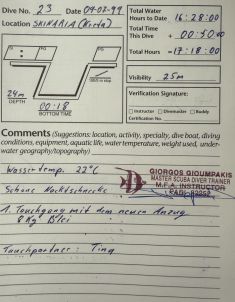 Dive No. 23 Date 04-02-99
Location SKINARIA (Kreta)
Total Water
Hours to Date 16:28:00
Total Time
This Dive + 00:50:00
Total Hours = 17:18:00
Visibility 25m
PG
PG
24m
DEPTH
00:18
BOTTOM TIME
Verification Signature:
Instructor Divemaster Buddy
Certification No.
Comments (Suggestions: location, activity, specialty, dive boat, diving
conditions, equipment, aquatic life, water temperature, weight used, under-
water geography/topography)
Wassertemp. 22°C
Schöne Nacktschnecke
GIORGOS GIOUMPAKIS
MASTER SCUBA DIVER TRAINER
M.F.A. INSTRUCTOR
PADI
1. Tauchgang mit dem neuen Anzug
8 Kg Blei
Tauchpartner: Tina